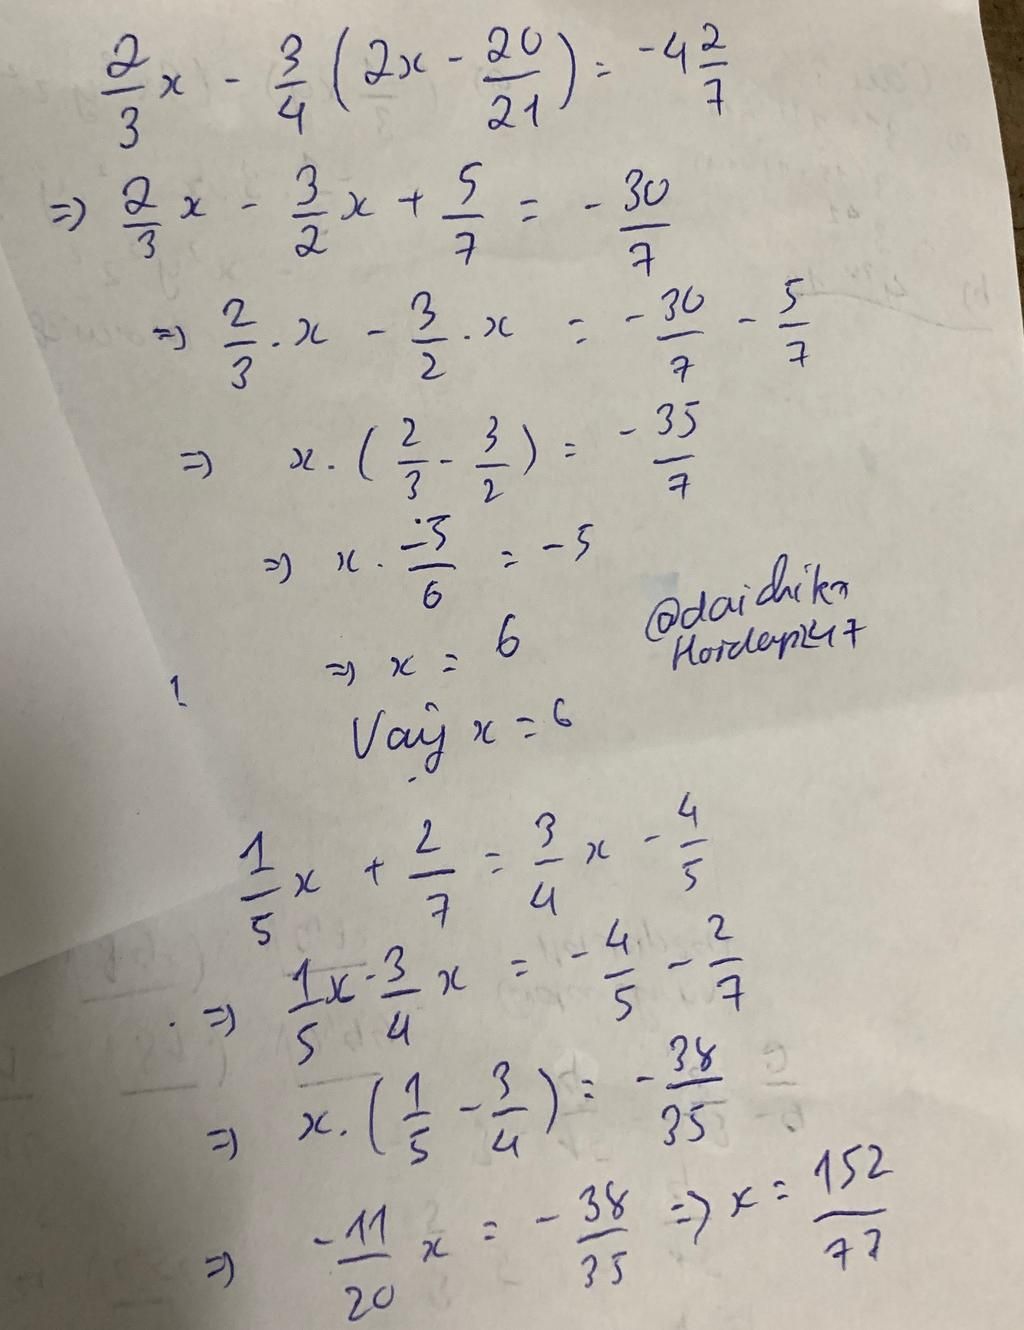 2/3 x - 3/4 (2x - 20/21) = -4 2/7
=> 2/3 x - 3/2 x + 5/7 = - 30/7
=> 2/3 . x - 3/2 . x = - 30/7 - 5/7
=> x . (2/3 - 3/2) = - 35/7
=> x . -5/6 = -5
=> x = 6
Vậy x = 6
1/5 x + 2/7 = 3/4 x - 4/5
=> 1/5 x - 3/4 x = - 4/5 - 2/7
=> x . (1/5 - 3/4) = - 38/35
=> - 11/20 x = - 38/35 => x = 152/77